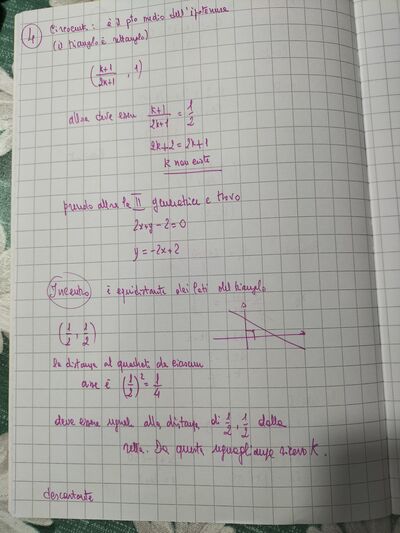 4 Circocentro: è il pto medio dell'ipotenusa
(il triangolo è rettangolo)
(k+1/2k+1 , 1)
allora deve essere k+1/2k+1 = 1/2
2k+2 = 2k+1
k non esiste
prendo allora la II generatrice e trovo
2x+y-2=0
y=-2x+2
Incentro è equidistante dai lati del triangolo
(1/2 , 1/2)
la distanza al quadrato da ciascun
asse è (1/2)² = 1/4
deve essere uguale alla distanza di 1/2 , 1/2 dalla
retta. Da questa uguaglianza ricavo K.